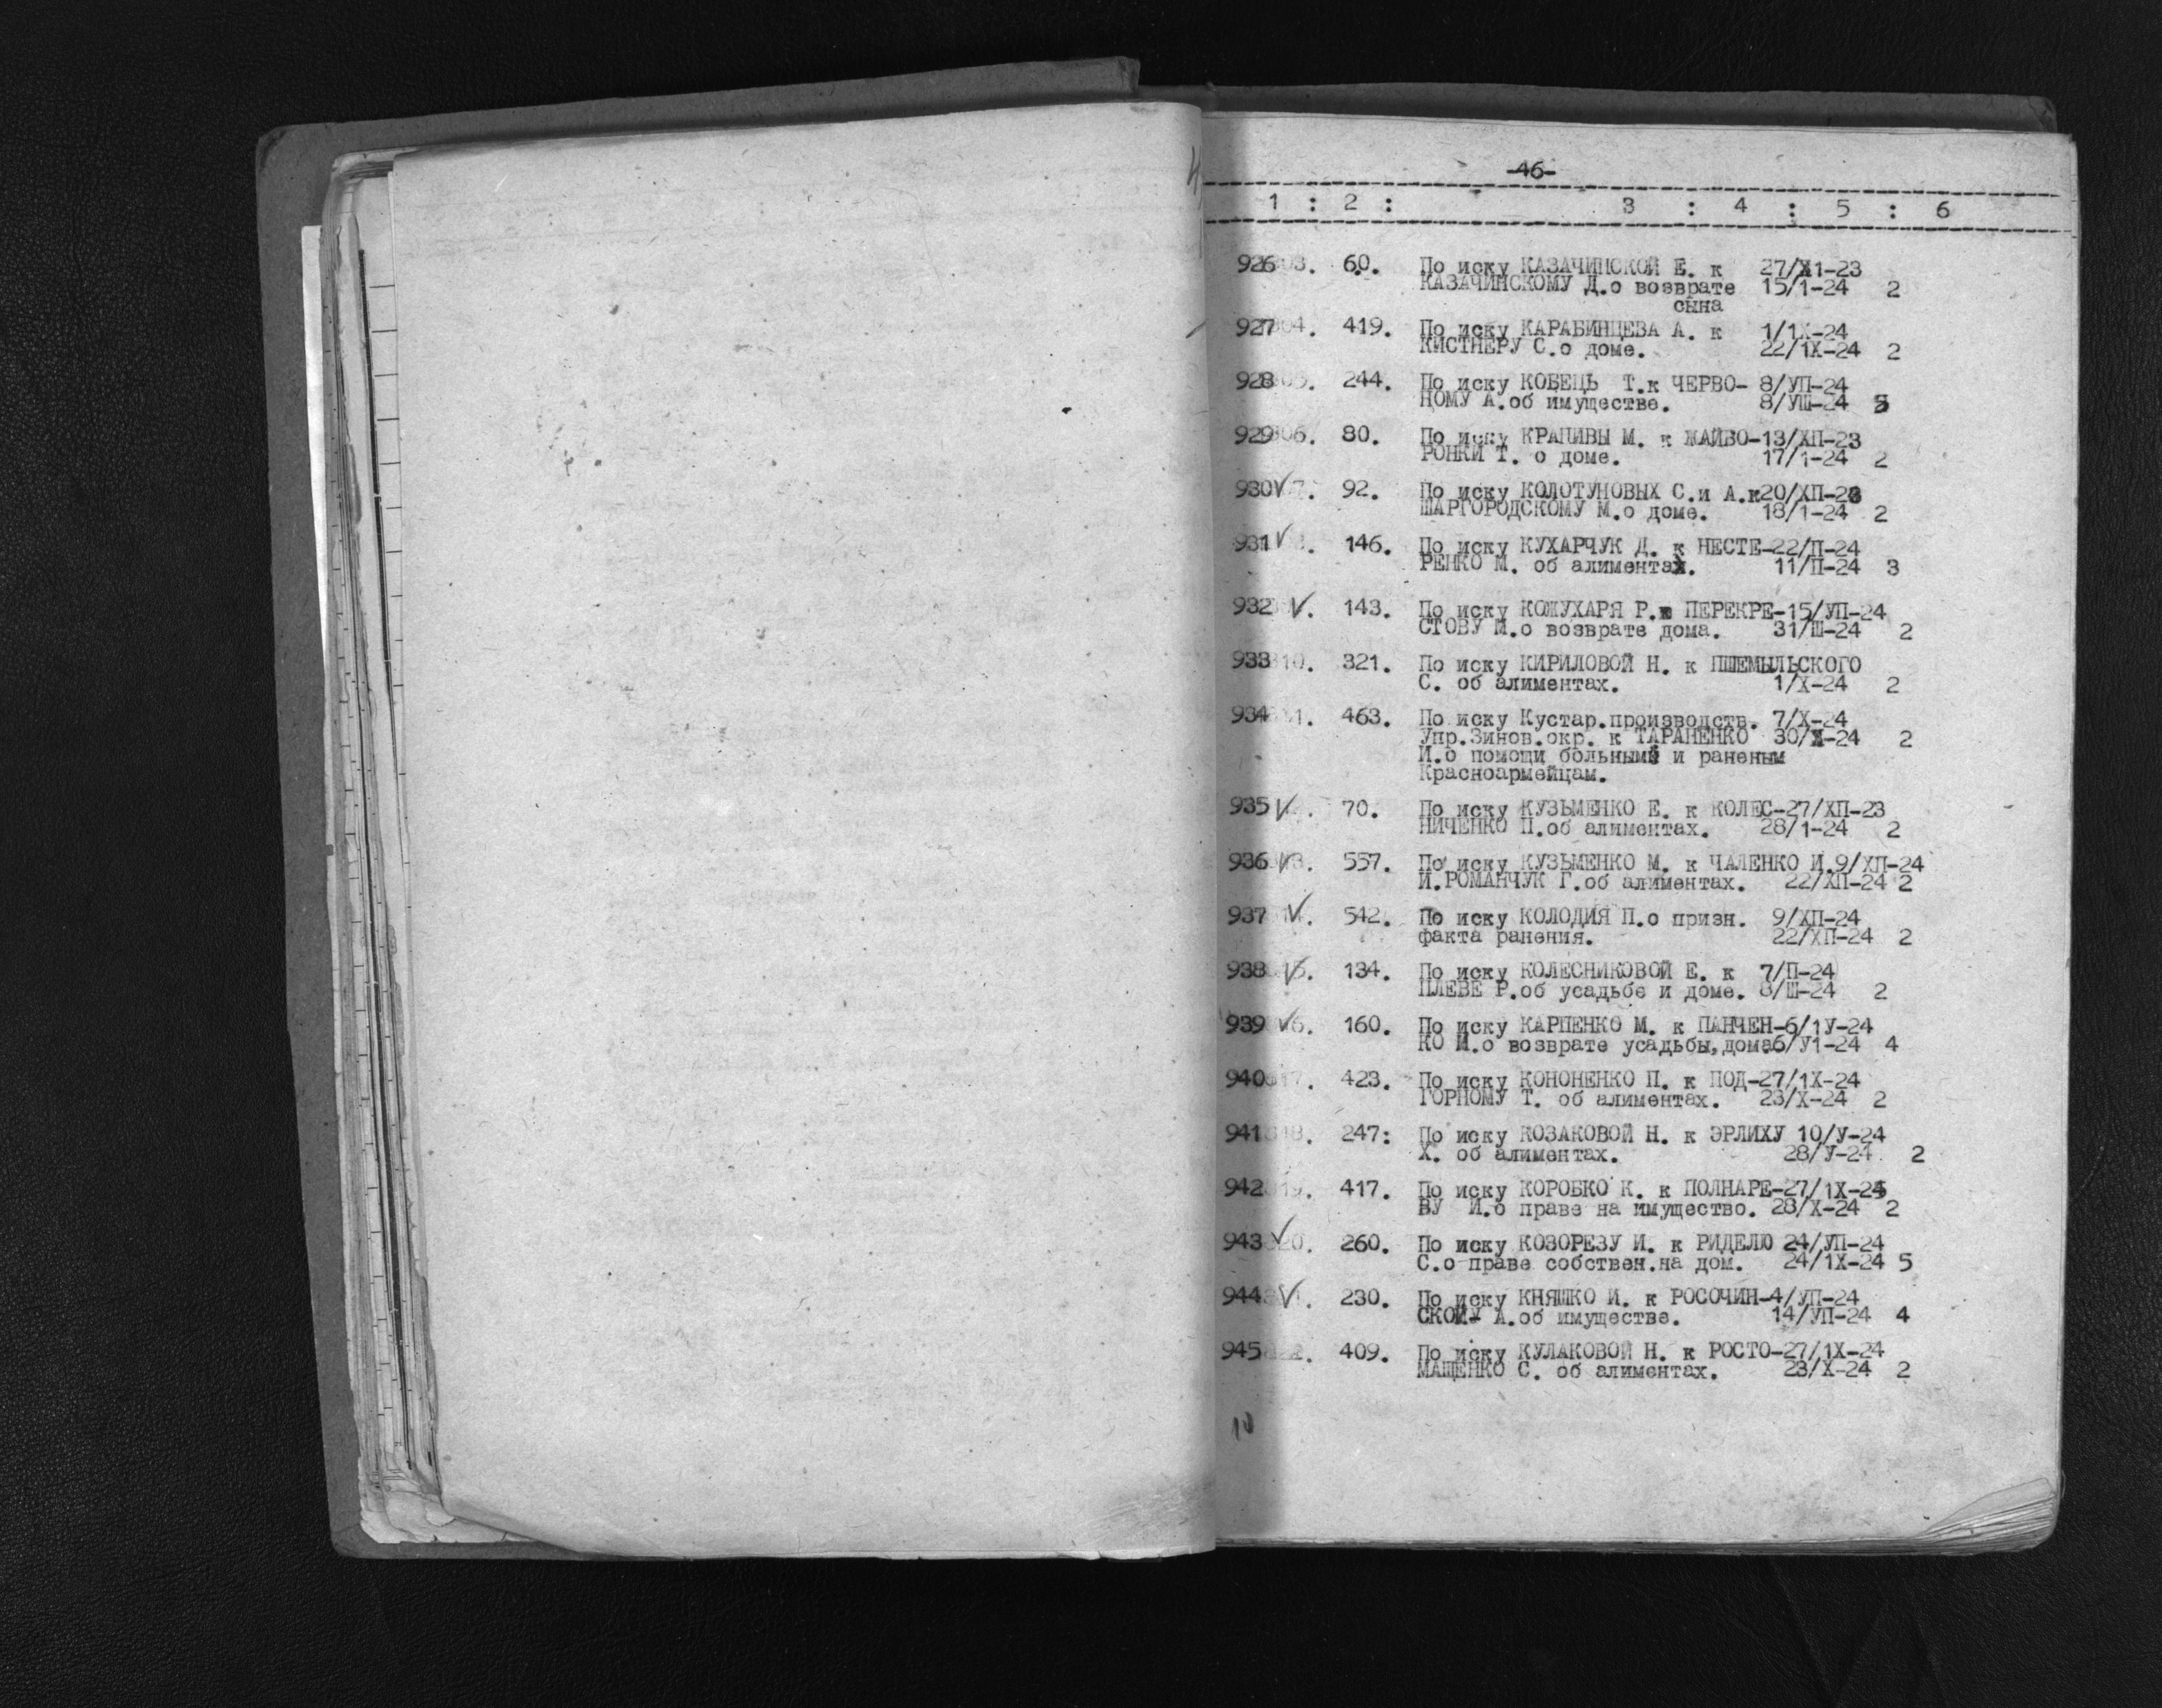 -46-
1 : 2 : 3 : 4 : 5 : 6
926 60. По иску КАЗАЧИНСКОЙ Е. к 27/Х1-23
КАЗАЧИНСКОМУ Д.о возврате 15/1-24 2
сына
927 419. По иску КАРАБИНЦЕВА А. к 1/1Х-24
КИСТНЕРУ С.о доме. 22/1Х-24 2
928 244. По иску КОБЕЦЬ Т.к ЧЕРВО- 8/УП-24
НОМУ А.об имуществе. 8/УШ-24
929 80. По иску КРАПИВЫ М. к ЖАЙВО-13/ХП-23
РОНКИ Т. о доме. 17/1-24 2
930 92. По иску КОЛОТУНОВЫХ С.и А.к20/ХП-23
ШАРГОРОДСКОМУ М.о доме. 18/1-24 2
931 146. По иску КУХАРЧУК Д. к НЕСТЕ-22/П-24
РЕНКО М. об алиментах. 11/П-24 3
932 143. По иску КОЖУХАРЯ Р.к ПЕРЕКРЕ-15/УП-24
СТОВУ М.о возврате дома. 31/Ш-24 2
933 321. По иску КИРИЛОВОЙ Н. к ПШЕМЫЛЬСКОГО
С. об алиментах. 1/Х-24 2
934 463. По иску Кустар.производств. 7/Х-24
Упр.Зинов.окр. к ТАРАНЕНКО 30/Х-24 2
И.о помощи больным и раненым
Красноармейцам.
935 70. По иску КУЗЬМЕНКО Е. к КОЛЕС-27/ХП-23
НИЧЕНКО П.об алиментах. 28/1-24 2
936 557. По иску КУЗЬМЕНКО М. к ЧАЛЕНКО И.9/ХП-24
И.РОМАНЧУК Г.об алиментах. 22/ХП-24 2
937 542. По иску КОЛОДИЯ П.о призн. 9/ХП-24
факта ранения. 22/ХП-24 2
938 134. По иску КОЛЕСНИКОВОЙ Е. к 7/П-24
ПЛЕВЕ Р.об усадьбе и доме. 8/Ш-24 2
939 160. По иску КАРПЕНКО М. к ПАНЧЕН-6/1У-24
КО М.о возврате усадьбы,дома6/У1-24 4
940 423. По иску КОНОНЕНКО П. к ПОД-27/1Х-24
ГОРНОМУ Т. об алиментах. 23/Х-24 2
941 247: По иску КОЗАКОВОЙ Н. к ЭРЛИХУ 10/У-24
Х. об алиментах. 28/У-24 2
942 417. По иску КОРОБКО К. к ПОЛНАРЕ-27/1Х-24
ВУ И.о праве на имущество. 28/Х-24 2
943 260. По иску КОЗОРЕЗУ И. к РИДЕЛЮ 24/УП-24
С.о праве собствен.на дом. 24/1Х-24 5
944 230. По иску КНЯШКО И. к РОСОЧИН-4/УП-24
СКОМУ А.об имуществе. 14/УП-24 4
945 409. По иску КУЛАКОВОЙ Н. к РОСТО-27/1Х-24
МАЩЕНКО С. об алиментах. 23/Х-24 2
10